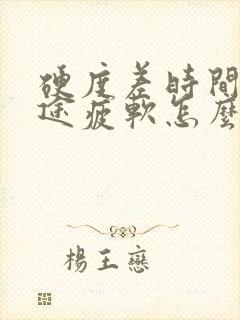 硬度差時間
途疲軟怎麼
楊王戀